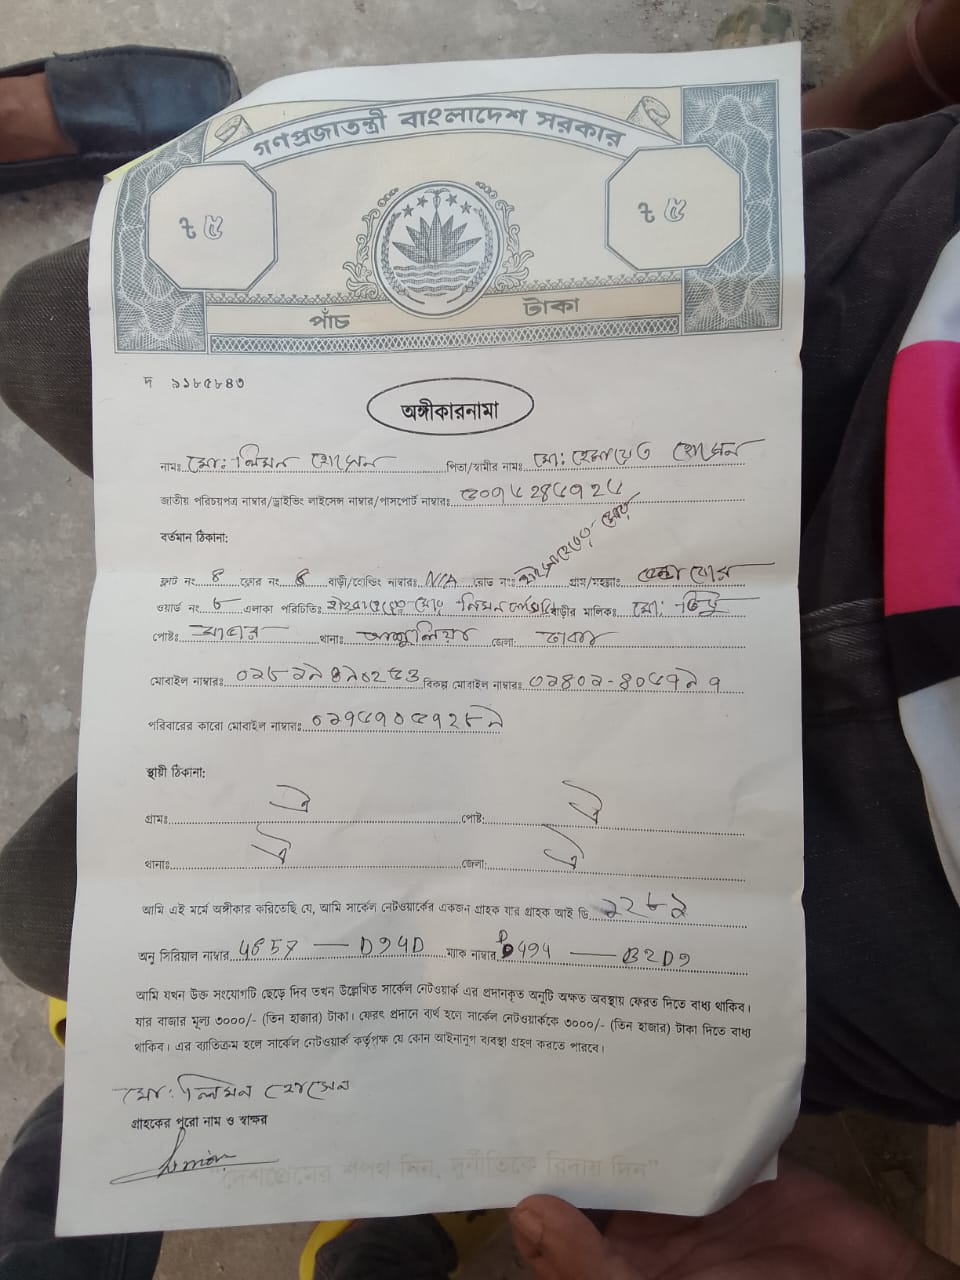 গণপ্রজাতন্ত্রী বাংলাদেশ সরকার
৳ ৫ ৳ ৫
পাঁচ টাকা
দ ৯১৮৫৮৪৩
অঙ্গীকারনামা
নামঃ মো: লিমন হোসেন পিতা/স্বামীর নামঃ মো: হেমায়েত হোসেন
জাতীয় পরিচয়পত্র নাম্বার/ড্রাইভিং লাইসেন্স নাম্বার/পাসপোর্ট নাম্বারঃ
বর্তমান ঠিকানা:
ফ্লাট নং ৪ ফ্লোর নং বাড়ী/হোল্ডিং নাম্বারঃ N/A রোড নংঃ গ্রাম/মহল্লাঃ
ওয়ার্ড নং ৮ এলাকা পরিচিতিঃ বাড়ীর মালিকঃ মো:
পোষ্টঃ থানাঃ আশুলিয়া জেলা: ঢাকা
মোবাইল নাম্বারঃ বিকল্প মোবাইল নাম্বারঃ
পরিবারের কারো মোবাইল নাম্বারঃ
স্থায়ী ঠিকানা:
গ্রামঃ ঐ পোষ্ট: ঐ
থানাঃ ঐ জেলা: ঐ
আমি এই মর্মে অঙ্গীকার করিতেছি যে, আমি সার্কেল নেটওয়ার্কের একজন গ্রাহক যার গ্রাহক আই ডি ১২৮৯
অনু সিরিয়াল নাম্বার 4657 — D94D ম্যাক নাম্বার — B2D9
আমি যখন উক্ত সংযোগটি ছেড়ে দিব তখন উল্লেখিত সার্কেল নেটওয়ার্ক এর প্রদানকৃত অনুটি অক্ষত অবস্থায় ফেরত দিতে বাধ্য থাকিব।
যার বাজার মূল্য ৩০০০/- (তিন হাজার) টাকা। ফেরৎ প্রদানে ব্যর্থ হলে সার্কেল নেটওয়ার্ককে ৩০০০/- (তিন হাজার) টাকা দিতে বাধ্য
থাকিব। এর ব্যতিক্রম হলে সার্কেল নেটওয়ার্ক কর্তৃপক্ষ যে কোন আইনানুগ ব্যবস্থা গ্রহণ করতে পারবে।
মো: লিমন হোসেন
গ্রাহকের পুরো নাম ও স্বাক্ষর
Limon
"দেশপ্রেমের শপথ নিন, দুর্নীতিকে বিদায় দিন"